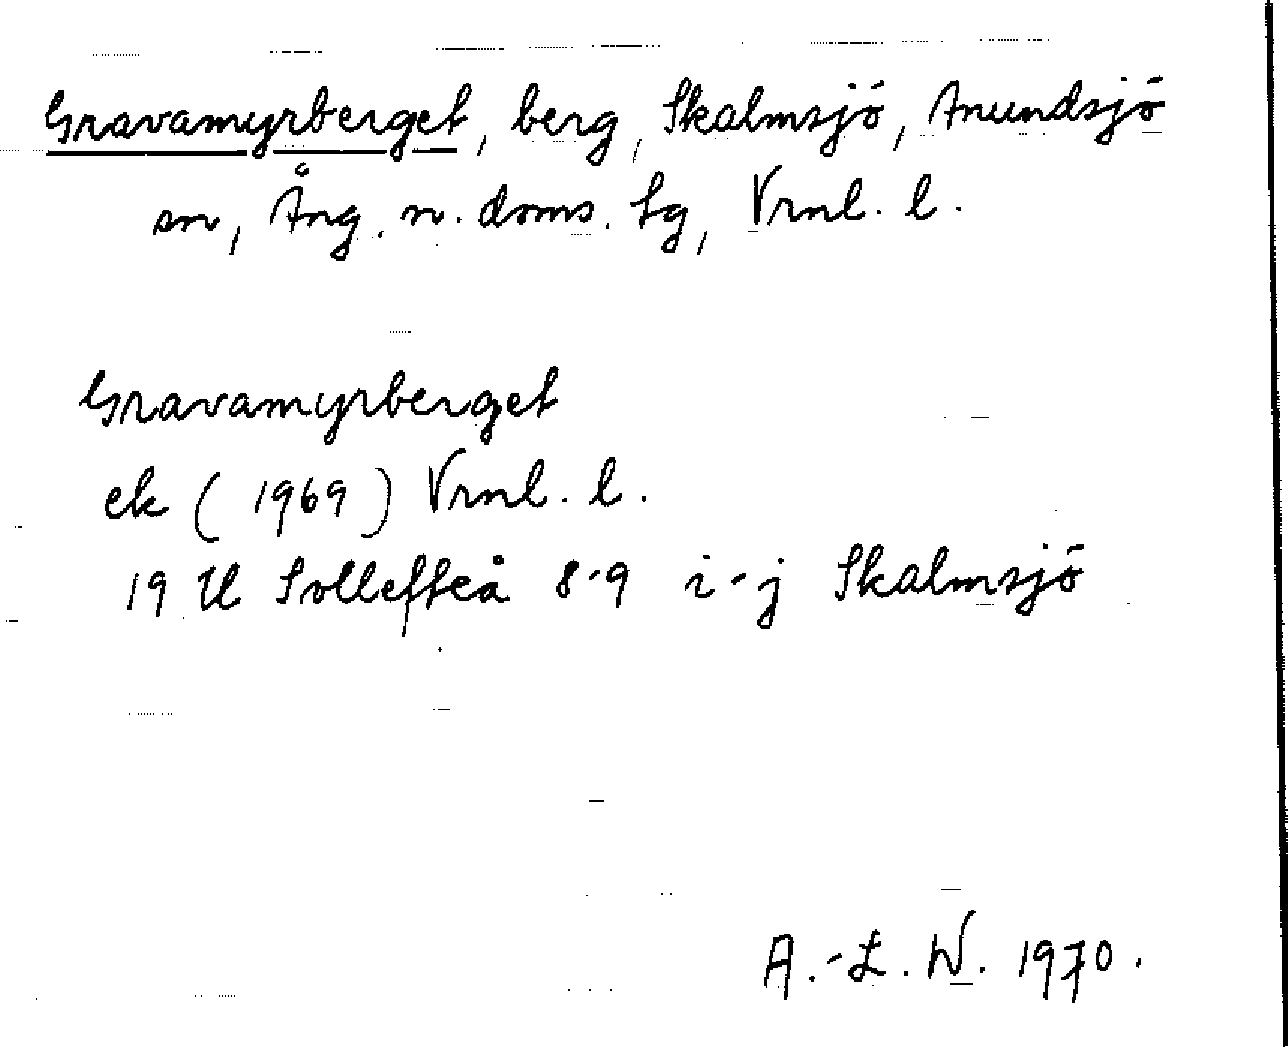 Gravamyrberget, berg, Skalmsjö, Anundsjö
sn, Ång. n. doms. lg, Vrnl. l.
Gravamyrberget
ek (1969) Vrnl. l.
19 H Sollefteå 8-9 i-j Skalmsjö
A.-L. W. 1970.